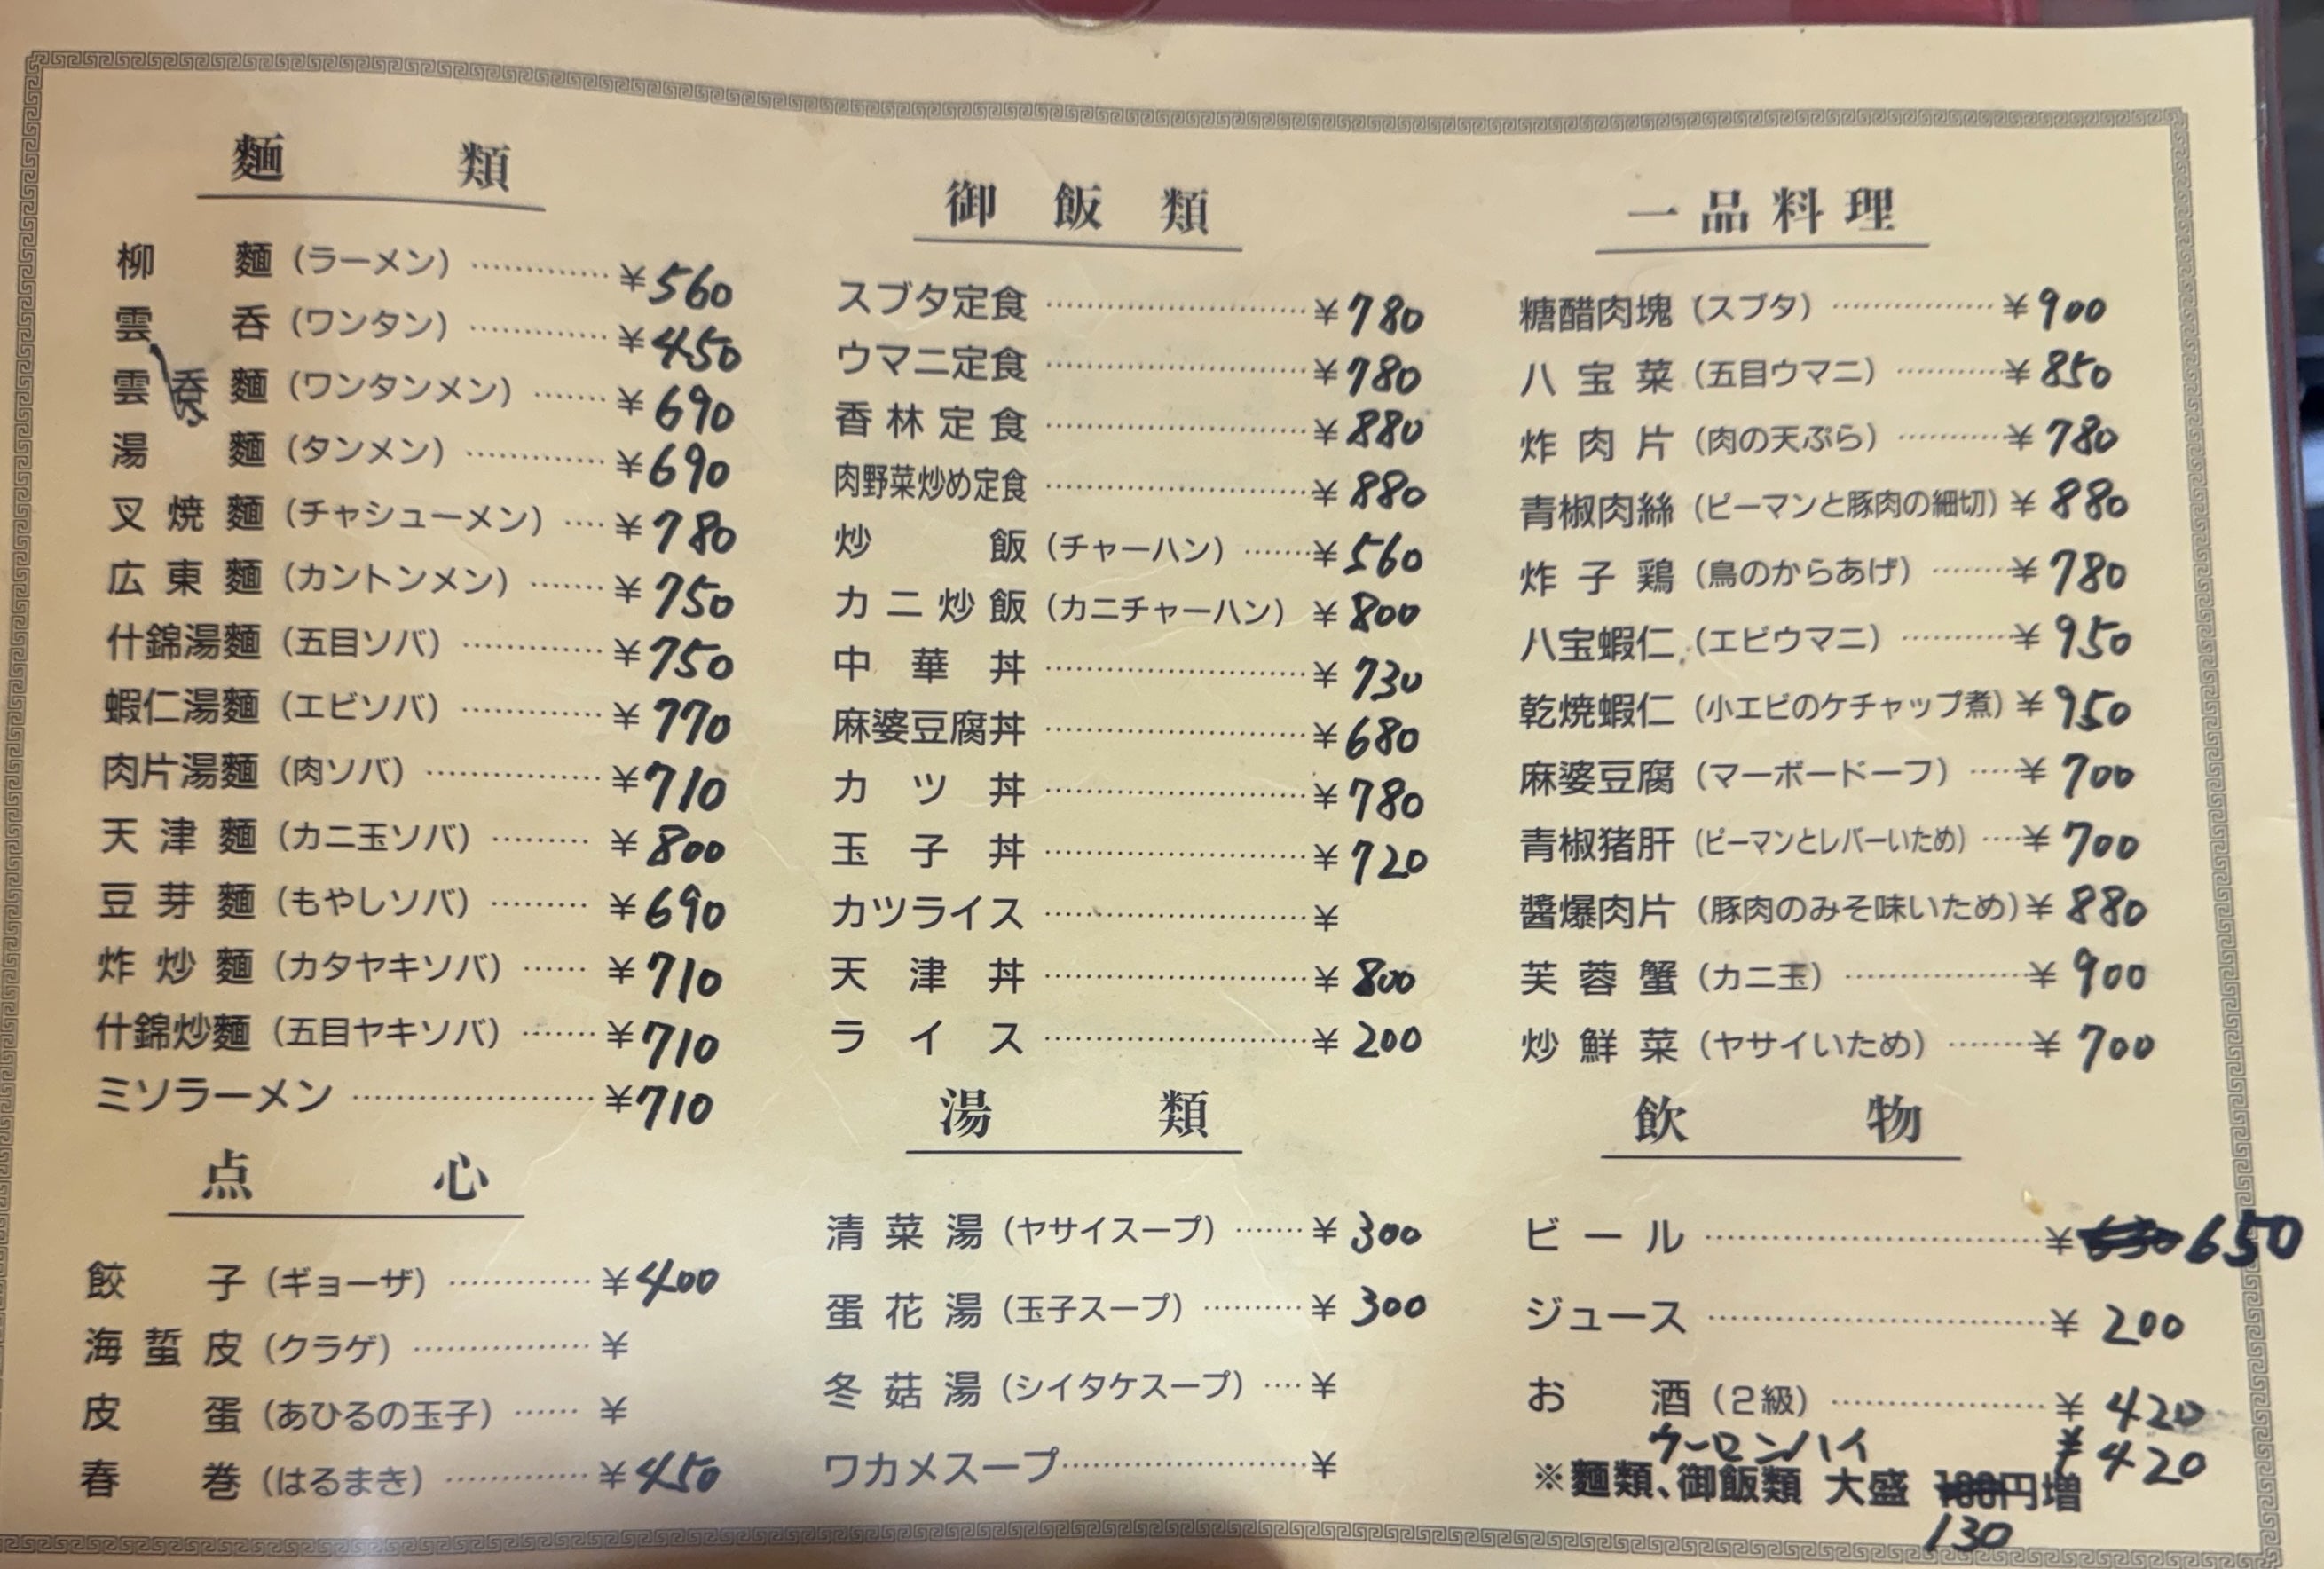 麵類
柳麵（ラーメン）…………¥560
雲呑（ワンタン）…………¥450
雲呑麵（ワンタンメン）……¥690
湯麵（タンメン）…………¥690
叉焼麵（チャシューメン）…¥780
広東麵（カントンメン）……¥750
什錦湯麵（五目ソバ）…………¥750
蝦仁湯麵（エビソバ）…………¥770
肉片湯麵（肉ソバ）……………¥710
天津麵（カニ玉ソバ）………¥800
豆芽麵（もやしソバ）………¥690
炸炒麵（カタヤキソバ）……¥710
什錦炒麵（五目ヤキソバ）……¥710
ミソラーメン…………………¥710
点心
餃子（ギョーザ）…………¥400
海蜇皮（クラゲ）……………¥
皮蛋（あひるの玉子）……¥
春巻（はるまき）…………¥450
御飯類
スブタ定食……………………¥780
ウマニ定食……………………¥780
香林定食……………………¥880
肉野菜炒め定食……………………¥880
炒飯（チャーハン）……¥560
カニ炒飯（カニチャーハン）¥800
中華丼……………………¥730
麻婆豆腐丼……………………¥680
カツ丼……………………¥780
玉子丼……………………¥720
カツライス……………………¥
天津丼……………………¥800
ライス……………………¥200
湯類
清菜湯（ヤサイスープ）……¥300
蛋花湯（玉子スープ）………¥300
冬菇湯（シイタケスープ）…¥
ワカメスープ…………………¥
一品料理
糖醋肉塊（スブタ）……………¥900
八宝菜（五目ウマニ）………¥850
炸肉片（肉の天ぷら）………¥780
青椒肉絲（ピーマンと豚肉の細切）¥880
炸子鶏（鳥のからあげ）……¥780
八宝蝦仁（エビウマニ）………¥950
乾焼蝦仁（小エビのケチャップ煮）¥950
麻婆豆腐（マーボードーフ）…¥700
青椒猪肝（ピーマンとレバーいため）…¥700
醬爆肉片（豚肉のみそ味いため）¥880
芙蓉蟹（カニ玉）……………¥900
炒鮮菜（ヤサイいため）……¥700
飲物
ビール…………………………¥630 650
ジュース…………………………¥200
お酒（2級）………………¥420
ウーロンハイ ¥420
※麵類、御飯類 大盛 100円増
130